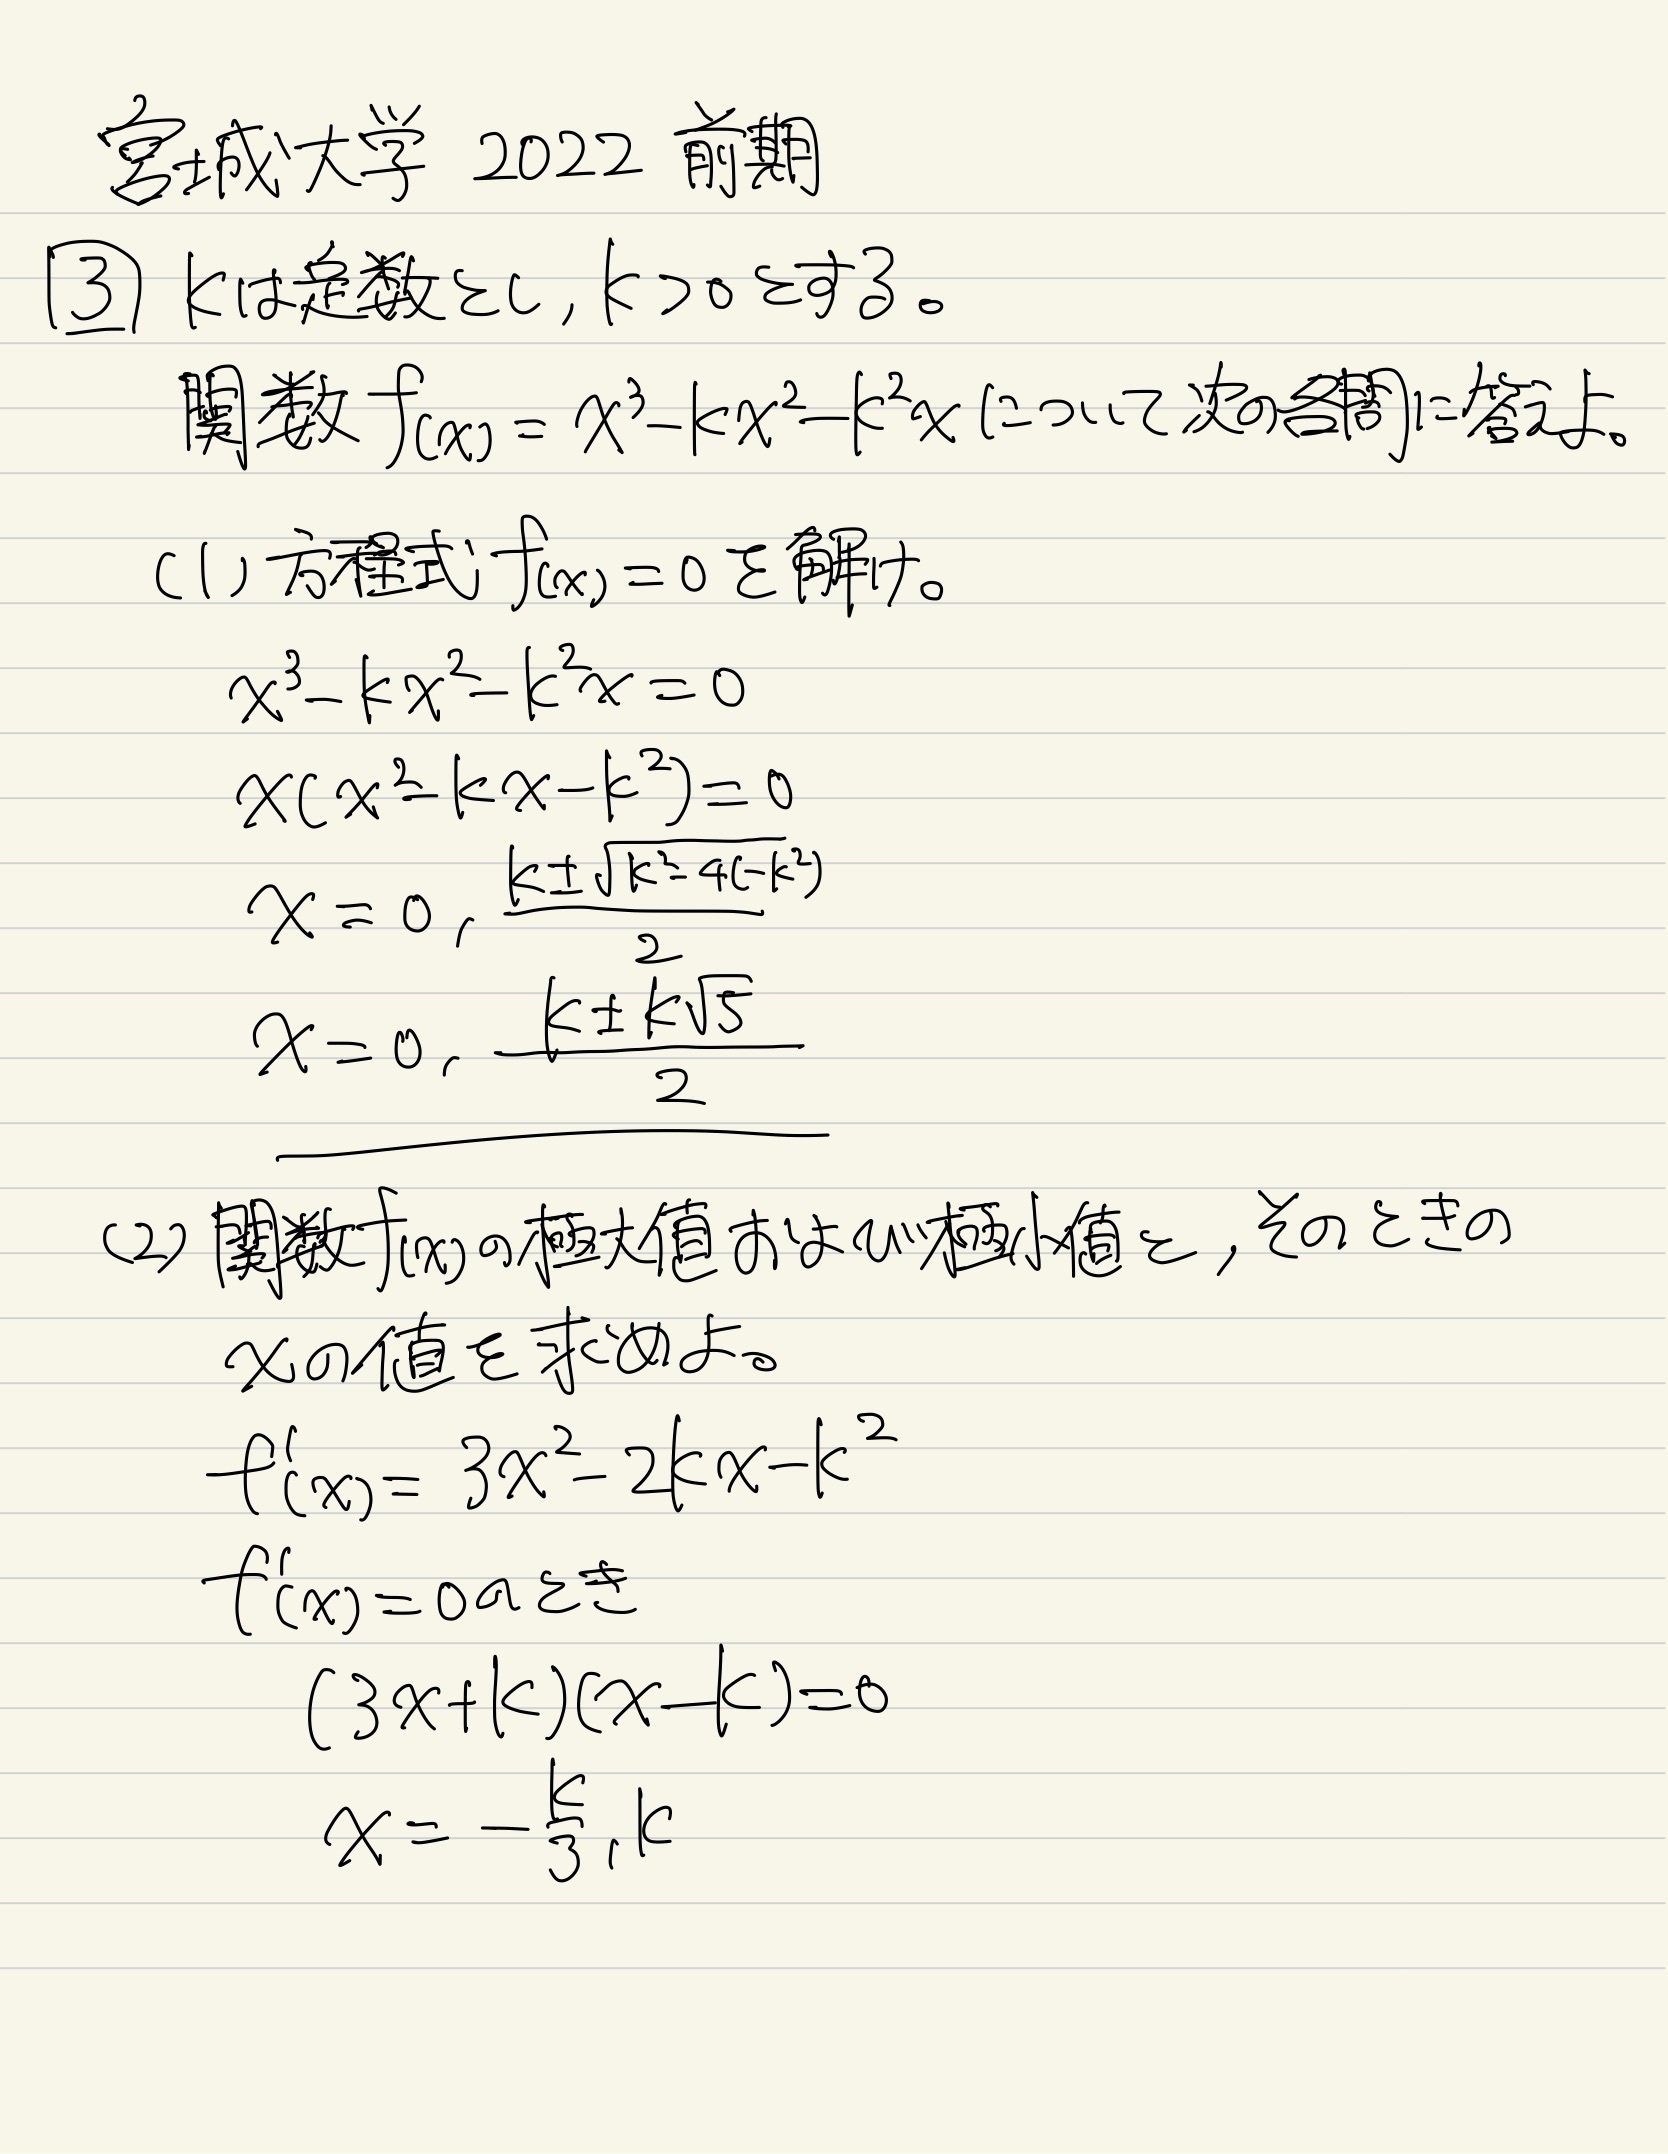 宮城大学 2022 前期
3 kは定数とし, k>0とする。
関数 f(x) = x³-kx²-k²x について次の各問に答えよ。
(1) 方程式 f(x)=0を解け。
x³-kx²-k²x=0
x(x²-kx-k²)=0
x=0, (k±√(k²-4(-k²)))/2
x=0, (k±k√5)/2
(2) 関数f(x)の極大値および極小値と,そのときの
xの値を求めよ。
f'(x)=3x²-2kx-k²
f'(x)=0のとき
(3x+k)(x-k)=0
x=-k/3, k